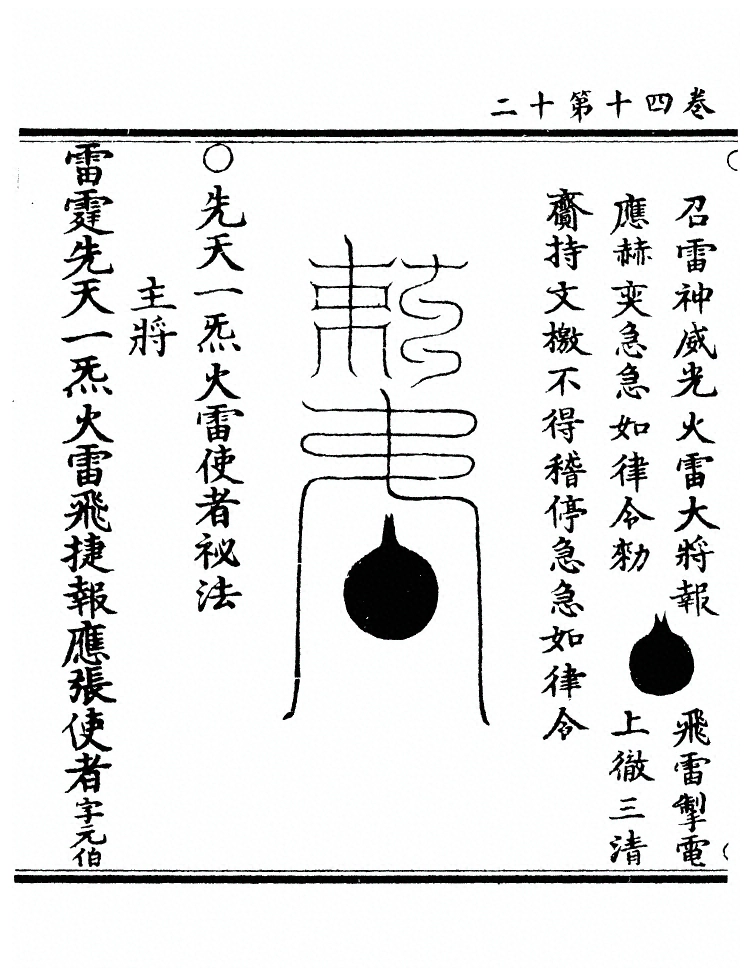 卷四十第十二
召雷神威光火雷大將報
應赫奕急急如律令勑
飛雷掣電
上徹三清
齎持文檄不得稽停急急如律令
先天一炁火雷使者祕法
主將
雷霆先天一炁火雷飛捷報應張使者字元伯